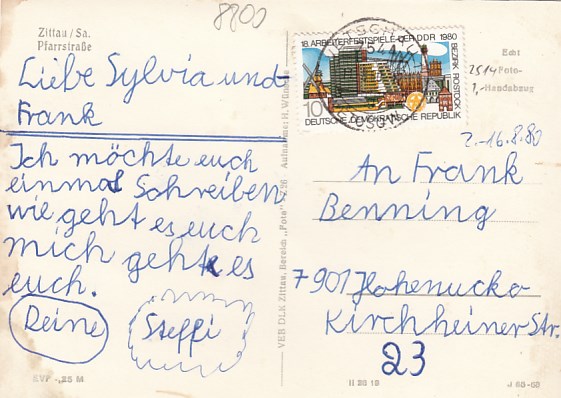 8900
Zittau / Sa.
Pfarrstraße
Liebe Sylvia und
Frank
Ich möchte euch
einmal Schreiben
wie geht es euch
mich geht es
euch.
Deine
Steffi
EVP -,25 M
VEB DLK Zittau, Bereich „Foto" Z 96 Aufnahme: H.
18. ARBEITERFESTSPIELE DER DDR 1980
BEZIRK ROSTOCK
10
DEUTSCHE DEMOKRATISCHE REPUBLIK
Echt
2514 Foto-
1,- Handabzug
2.-16.8.80
An Frank
Benning
7901 Hohenucko
Kirchheiner Str.
23
II 28 19
J 65-58